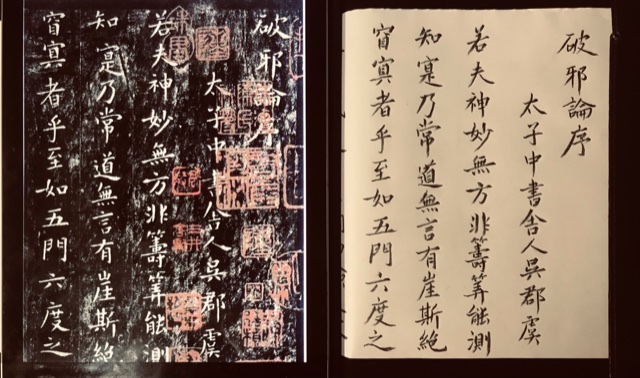 破邪論序
太子中書舍人吳郡虞
若夫神妙無方非籌筭能測
知寔乃常道無言有崖斯絶
窅㝠者乎至如五門六度之
破邪論序
太子中書舍人吳郡虞
若夫神妙無方非籌筭能測
知寔乃常道無言有崖斯絶
窅㝠者乎至如五門六度之